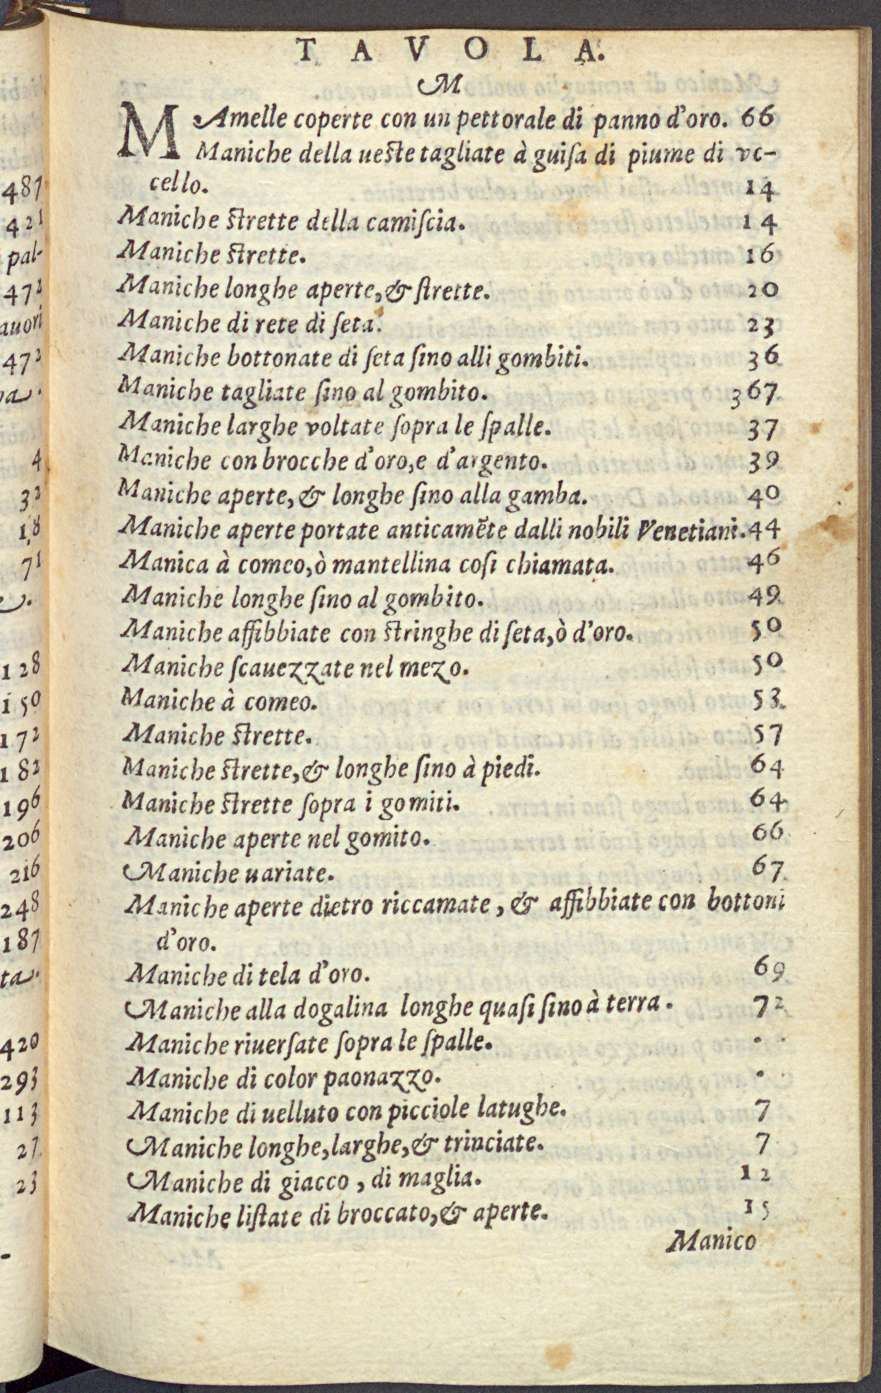 487
421
pal-
472
auori
472
4
32
18
71
128
150
172
182
196
206
216
248
187
ta.
420
293
113
27
23
TAVOLA.
M
MAmelle coperte con un pettorale di panno d'oro. 66
Maniche della ueſte tagliate à guiſa di piume di vc-
cello. 14
Maniche ſtrette della camiſcia. 14
Maniche ſtrette. 16
Maniche longhe aperte, & ſtrette. 20
Maniche di rete di ſeta. 23
Maniche bottonate di ſeta ſino alli gombiti. 36
Maniche tagliate ſino al gombito. 367
Maniche larghe voltate ſopra le ſpalle. 37
Maniche con brocche d'oro, e d'argento. 39
Maniche aperte, & longhe ſino alla gamba. 40
Maniche aperte portate anticamẽte dalli nobili Venetiani. 44
Manica à comeo, ò mantellina coſi chiamata. 46
Maniche longhe ſino al gombito. 49
Maniche affibbiate con ſtringhe di ſeta, ò d'oro. 50
Maniche ſcauezzate nel mezo. 50
Maniche à comeo. 53
Maniche ſtrette. 57
Maniche ſtrette, & longhe ſino à piedi. 64
Maniche ſtrette ſopra i gomiti. 64
Maniche aperte nel gomito. 66
Maniche uariate. 67
Maniche aperte dietro riccamate, & affibbiate con bottoni
d'oro.
Maniche di tela d'oro. 69
Maniche alla dogalina longhe quaſi ſino à terra. 72
Maniche riuerſate ſopra le ſpalle. . .
Maniche di color paonazzo. . .
Maniche di uelluto con picciole latughe. 7
Maniche longhe, larghe, & trinciate. 7
Maniche di giacco, di maglia. 12
Maniche liſtate di broccato, & aperte. 15
Manico